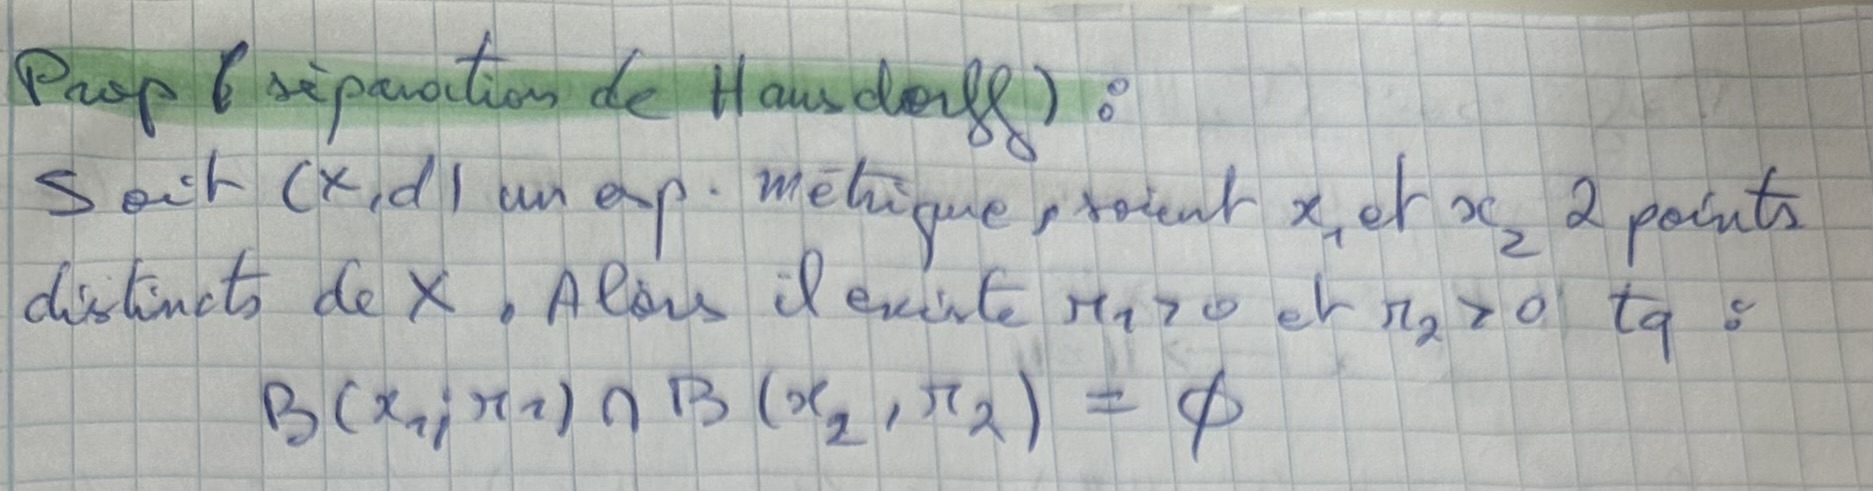 Prop (séparation de Hausdorff) :
Soit (X,d) un esp. métrique, soient x₁ et x₂ 2 points
distincts de X. Alors il existe r₁>0 et r₂>0 tq :
B(x₁; r₁) ∩ B(x₂, r₂) = ∅